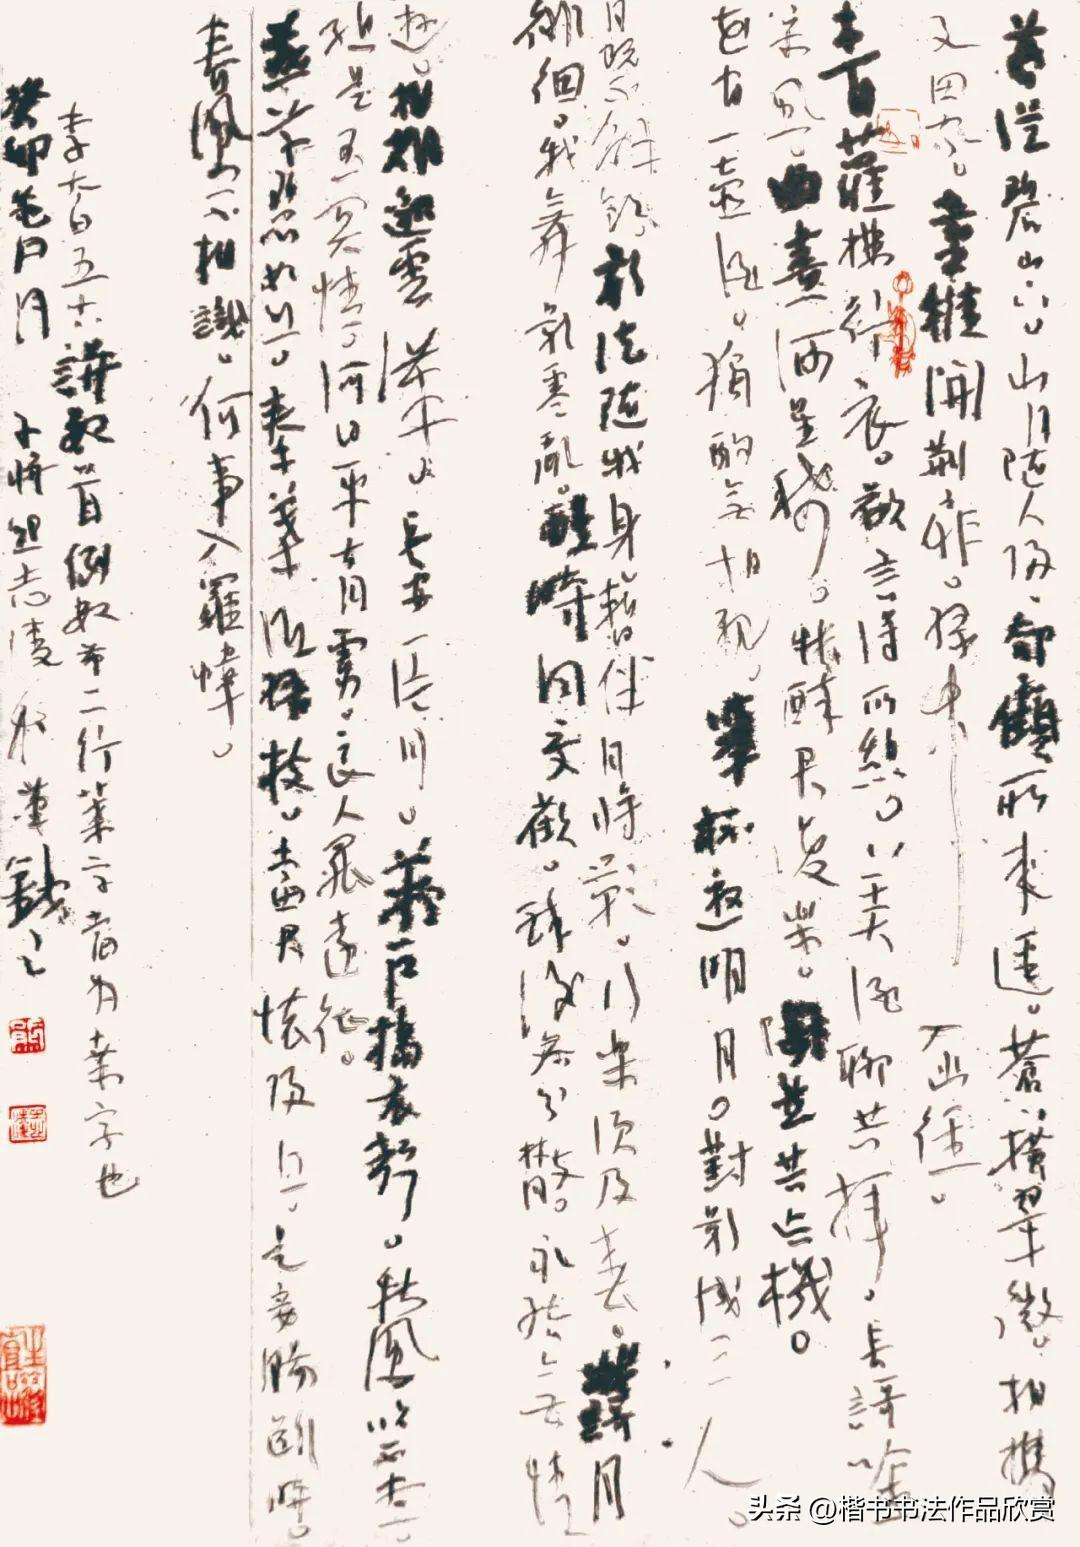 暮從碧山下。山月隨人歸。却顧所來逕。蒼蒼橫翠微。相攜
及田家。童稚開荊扉。綠竹入幽徑。
青蘿拂行衣。歡言得所憩。美酒聊共揮。長歌吟
松風。曲盡河星稀。我醉君復樂。陶然共忘機。
花間一壺酒。獨酌無相親。舉杯邀明月。對影成三人。
月既不解飲影徒隨我身暫伴月將影。行樂須及春。我歌月
徘徊。我舞影零亂。醒時同交歡。醉後各分散。永結無情
遊。相期邈雲漢。長安一片月。萬戶擣衣聲。秋風吹不盡
總是玉關情。何日平胡虜。良人罷遠征。
燕草碧如絲。秦葉低綠枝。當君懷歸日。是妾腸斷時。
春風不相識。何事入羅幃。
李太白五古詩數首倒數第二行葉字當為桑字也
癸卯
头条 @楷书书法作品欣赏